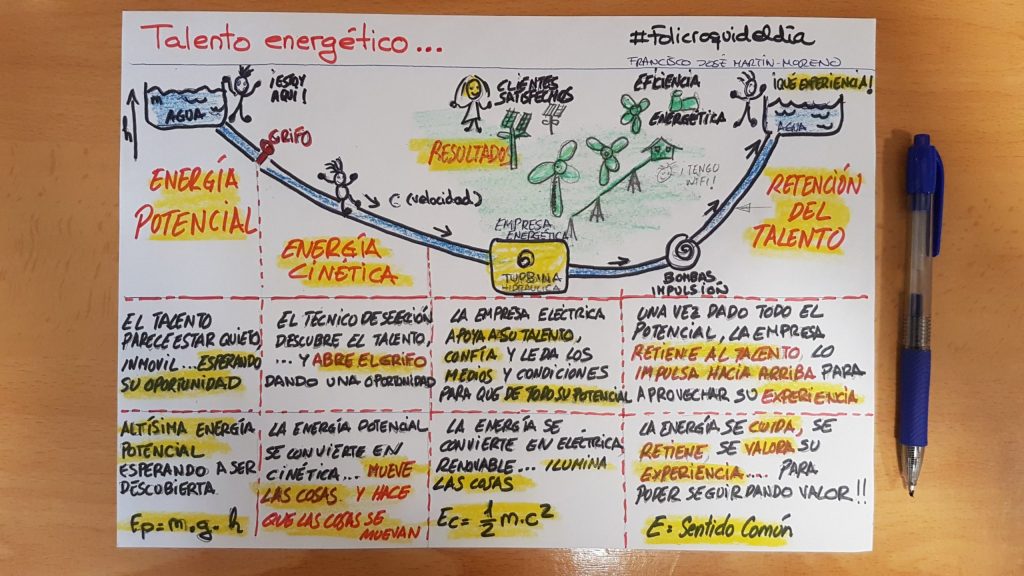 Talento energético...
#Folicroquideldía
FRANCISCO JOSÉ MARTÍN-MORENO
¡ESTOY
AQUÍ!
AGUA
h
GRIFO
ENERGÍA
POTENCIAL
C (velocidad)
ENERGÍA
CINÉTICA
CLIENTES
SATISFECHOS
RESULTADO
EFICIENCIA
ENERGÉTICA
¡TENGO
WIFI!
EMPRESA
ENERGÉTICA
TURBINA
HIDRAÚLICA
BOMBAS
IMPULSIÓN
¡QUÉ EXPERIENCIA!
AGUA
RETENCIÓN
DEL
TALENTO
EL TALENTO
PARECE ESTAR QUIETO,
INMOVIL... ESPERANDO
SU OPORTUNIDAD
EL TÉCNICO DE SELECCIÓN
DESCUBRE EL TALENTO,
...Y ABRE EL GRIFO
DANDO UNA OPORTUNIDAD
LA EMPRESA ELÉCTRICA
APOYA A SU TALENTO,
CONFÍA Y LE DA LOS
MEDIOS Y CONDICIONES
PARA QUE DE TODO SU POTENCIAL
UNA VEZ DADO TODO EL
POTENCIAL, LA EMPRESA
RETIENE AL TALENTO, LO
IMPULSA HACIA ARRIBA PARA
APROVECHAR SU EXPERIENCIA
ALTÍSIMA ENERGÍA
POTENCIAL
ESPERANDO A SER
DESCUBIERTA.
Ep = m.g.h
LA ENERGÍA POTENCIAL
SE CONVIERTE EN
CINÉTICA... MUEVE
LAS COSAS Y HACE
QUE LAS COSAS SE
MUEVAN
LA ENERGÍA SE
CONVIERTE EN ELÉCTRICA
RENOVABLE... ILUMINA
LAS COSAS
Ec = 1/2 m.c²
LA ENERGÍA SE CUIDA, SE
RETIENE, SE VALORA SU
EXPERIENCIA.... PARA
PODER SEGUIR DANDO VALOR!!
E = Sentido Común